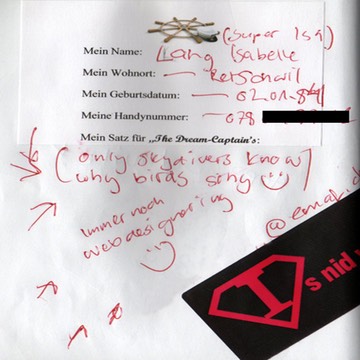 (Super Isa)
Mein Name: Lang Isabelle
Mein Wohnort: — Retschwil
Mein Geburtsdatum: — 02.01.84
Meine Handynummer: — 078
Mein Satz für „The Dream-Captain's:
(only skydivers know
why birds sing
Immer noch
webdesignerin
@
I
s nid